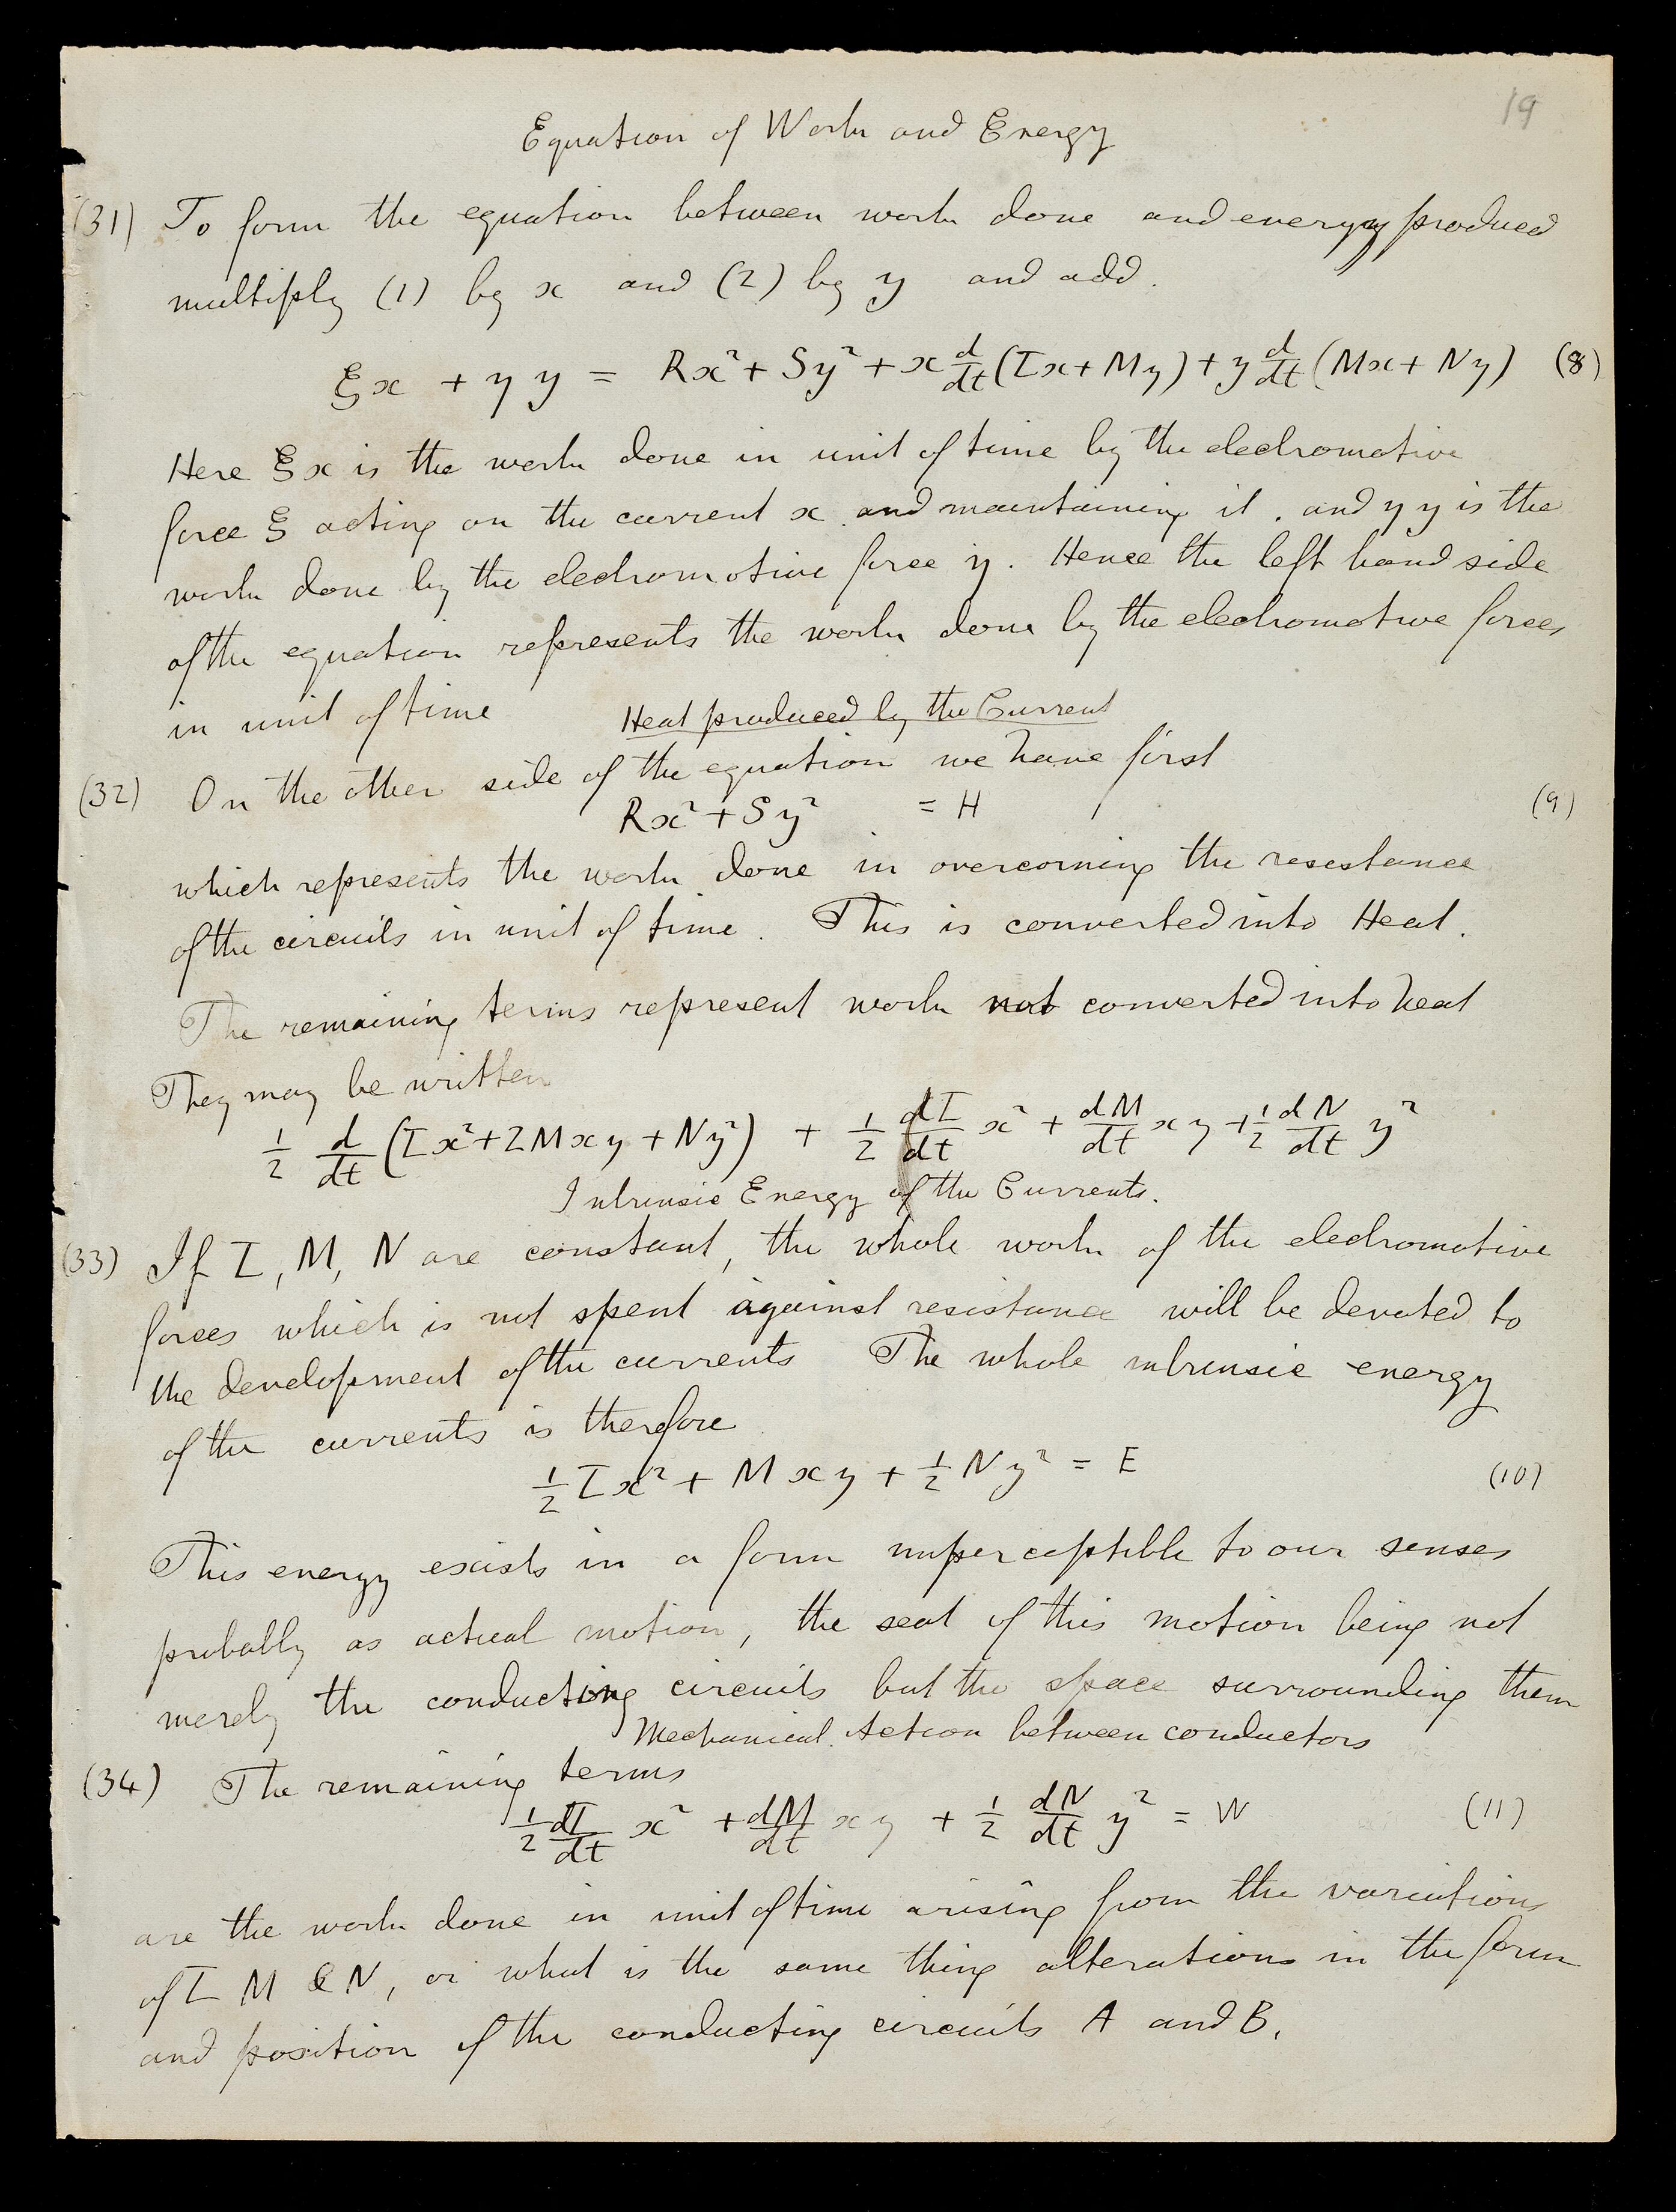 19
Equation of Work and Energy
(31) To form the equation between work done and energy produced
multiply (1) by x and (2) by y and add.
ξx + ηy = Rx² + Sy² + x d/dt (Lx + My) + y d/dt (Mx + Ny) (8)
Here ξx is the work done in unit of time by the electromotive
force ξ acting on the current x and maintaining it, and ηy is the
work done by the electromotive force η. Hence the left hand side
of the equation represents the work done by the electromotive forces
in unit of time
Heat produced by the Current
(32) On the other side of the equation we have first
Rx² + Sy² = H (9)
which represents the work done in overcoming the resistance
of the circuits in unit of time. This is converted into Heat.
The remaining terms represent work not converted into heat
They may be written
1/2 d/dt (Lx² + 2Mxy + Ny²) + 1/2 dL/dt x² + dM/dt xy + 1/2 dN/dt y²
Intrinsic Energy of the Currents.
(33) If L, M, N are constant, the whole work of the electromotive
forces which is not spent against resistance will be devoted to
the development of the currents The whole intrinsic energy
of the currents is therefore
1/2 Lx² + Mxy + 1/2 Ny² = E (10)
This energy exists in a form imperceptible to our senses
probably as actual motion, the seat of this motion being not
merely the conducting circuits but the space surrounding them
Mechanical Action between conductors
(34) The remaining terms
1/2 dL/dt x² + dM/dt xy + 1/2 dN/dt y² = W (11)
are the work done in unit of time arising from the variations
of L M & N, or what is the same thing alterations in the form
and position of the conducting circuits A and B.